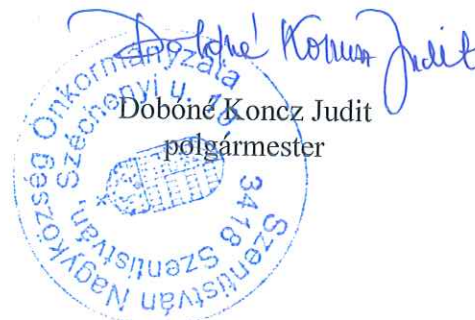 Dobóné Koncz Judit
Dobóné Koncz Judit
polgármester
Szentistván Nagyközség Önkormányzata
3418 Szentistván, Széchenyi u. 10.